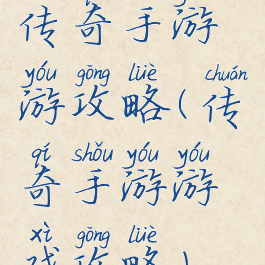 传奇手游
yóu gōng lüè chuán
游攻略(传
qí shǒu yóu yóu
奇手游游
xì gōng lüè
戏攻略)